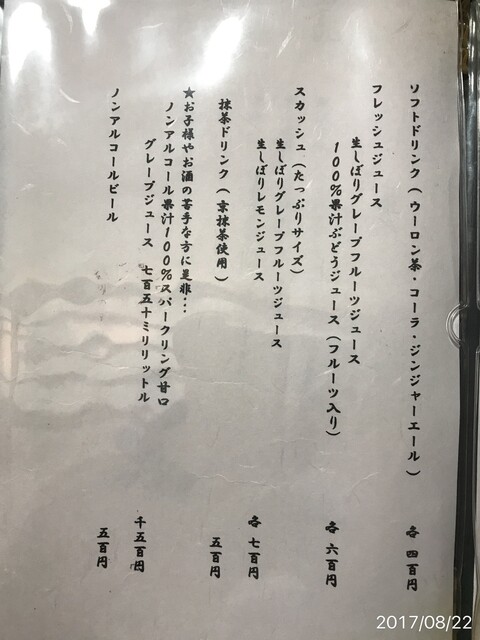 ソフトドリンク(ウーロン茶・コーラ・ジンジャーエール) 各四百円
フレッシュジュース
生しぼりグレープフルーツジュース
100%果汁ぶどうジュース(フルーツ入り) 各六百円
スカッシュ(たっぷりサイズ)
生しぼりグレープフルーツジュース
生しぼりレモンジュース 各七百円
抹茶ドリンク(京抹茶使用) 五百円
★お子様やお酒の苦手な方に是非…
ノンアルコール果汁100%スパークリング甘口
グレープジュース 七百五十ミリリットル 千五百円
ノンアルコールビール 五百円
2017/08/22